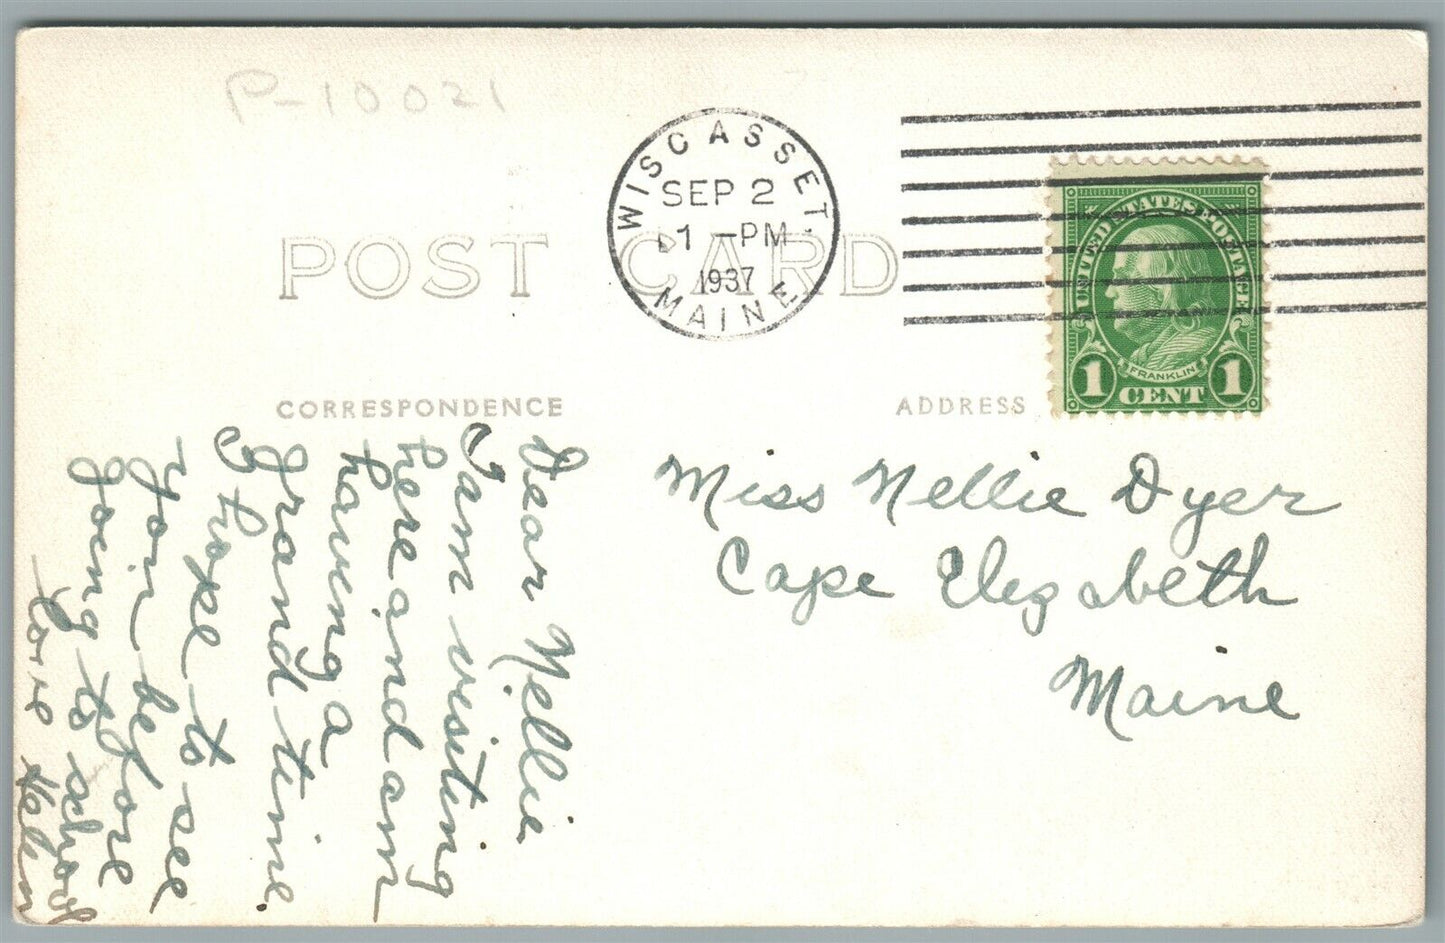 P-10021
WISCASSET.
SEP 2
1 -PM
1937
MAINE
UNITED STATES POSTAGE
FRANKLIN
1 CENT 1
POST CARD
CORRESPONDENCE
ADDRESS
Dear Nellie
I am visiting
here and am
having a
grand time.
I hope to see
you before
going to school
Love Helen
Miss Nellie Dyer
Cape Elizabeth
Maine